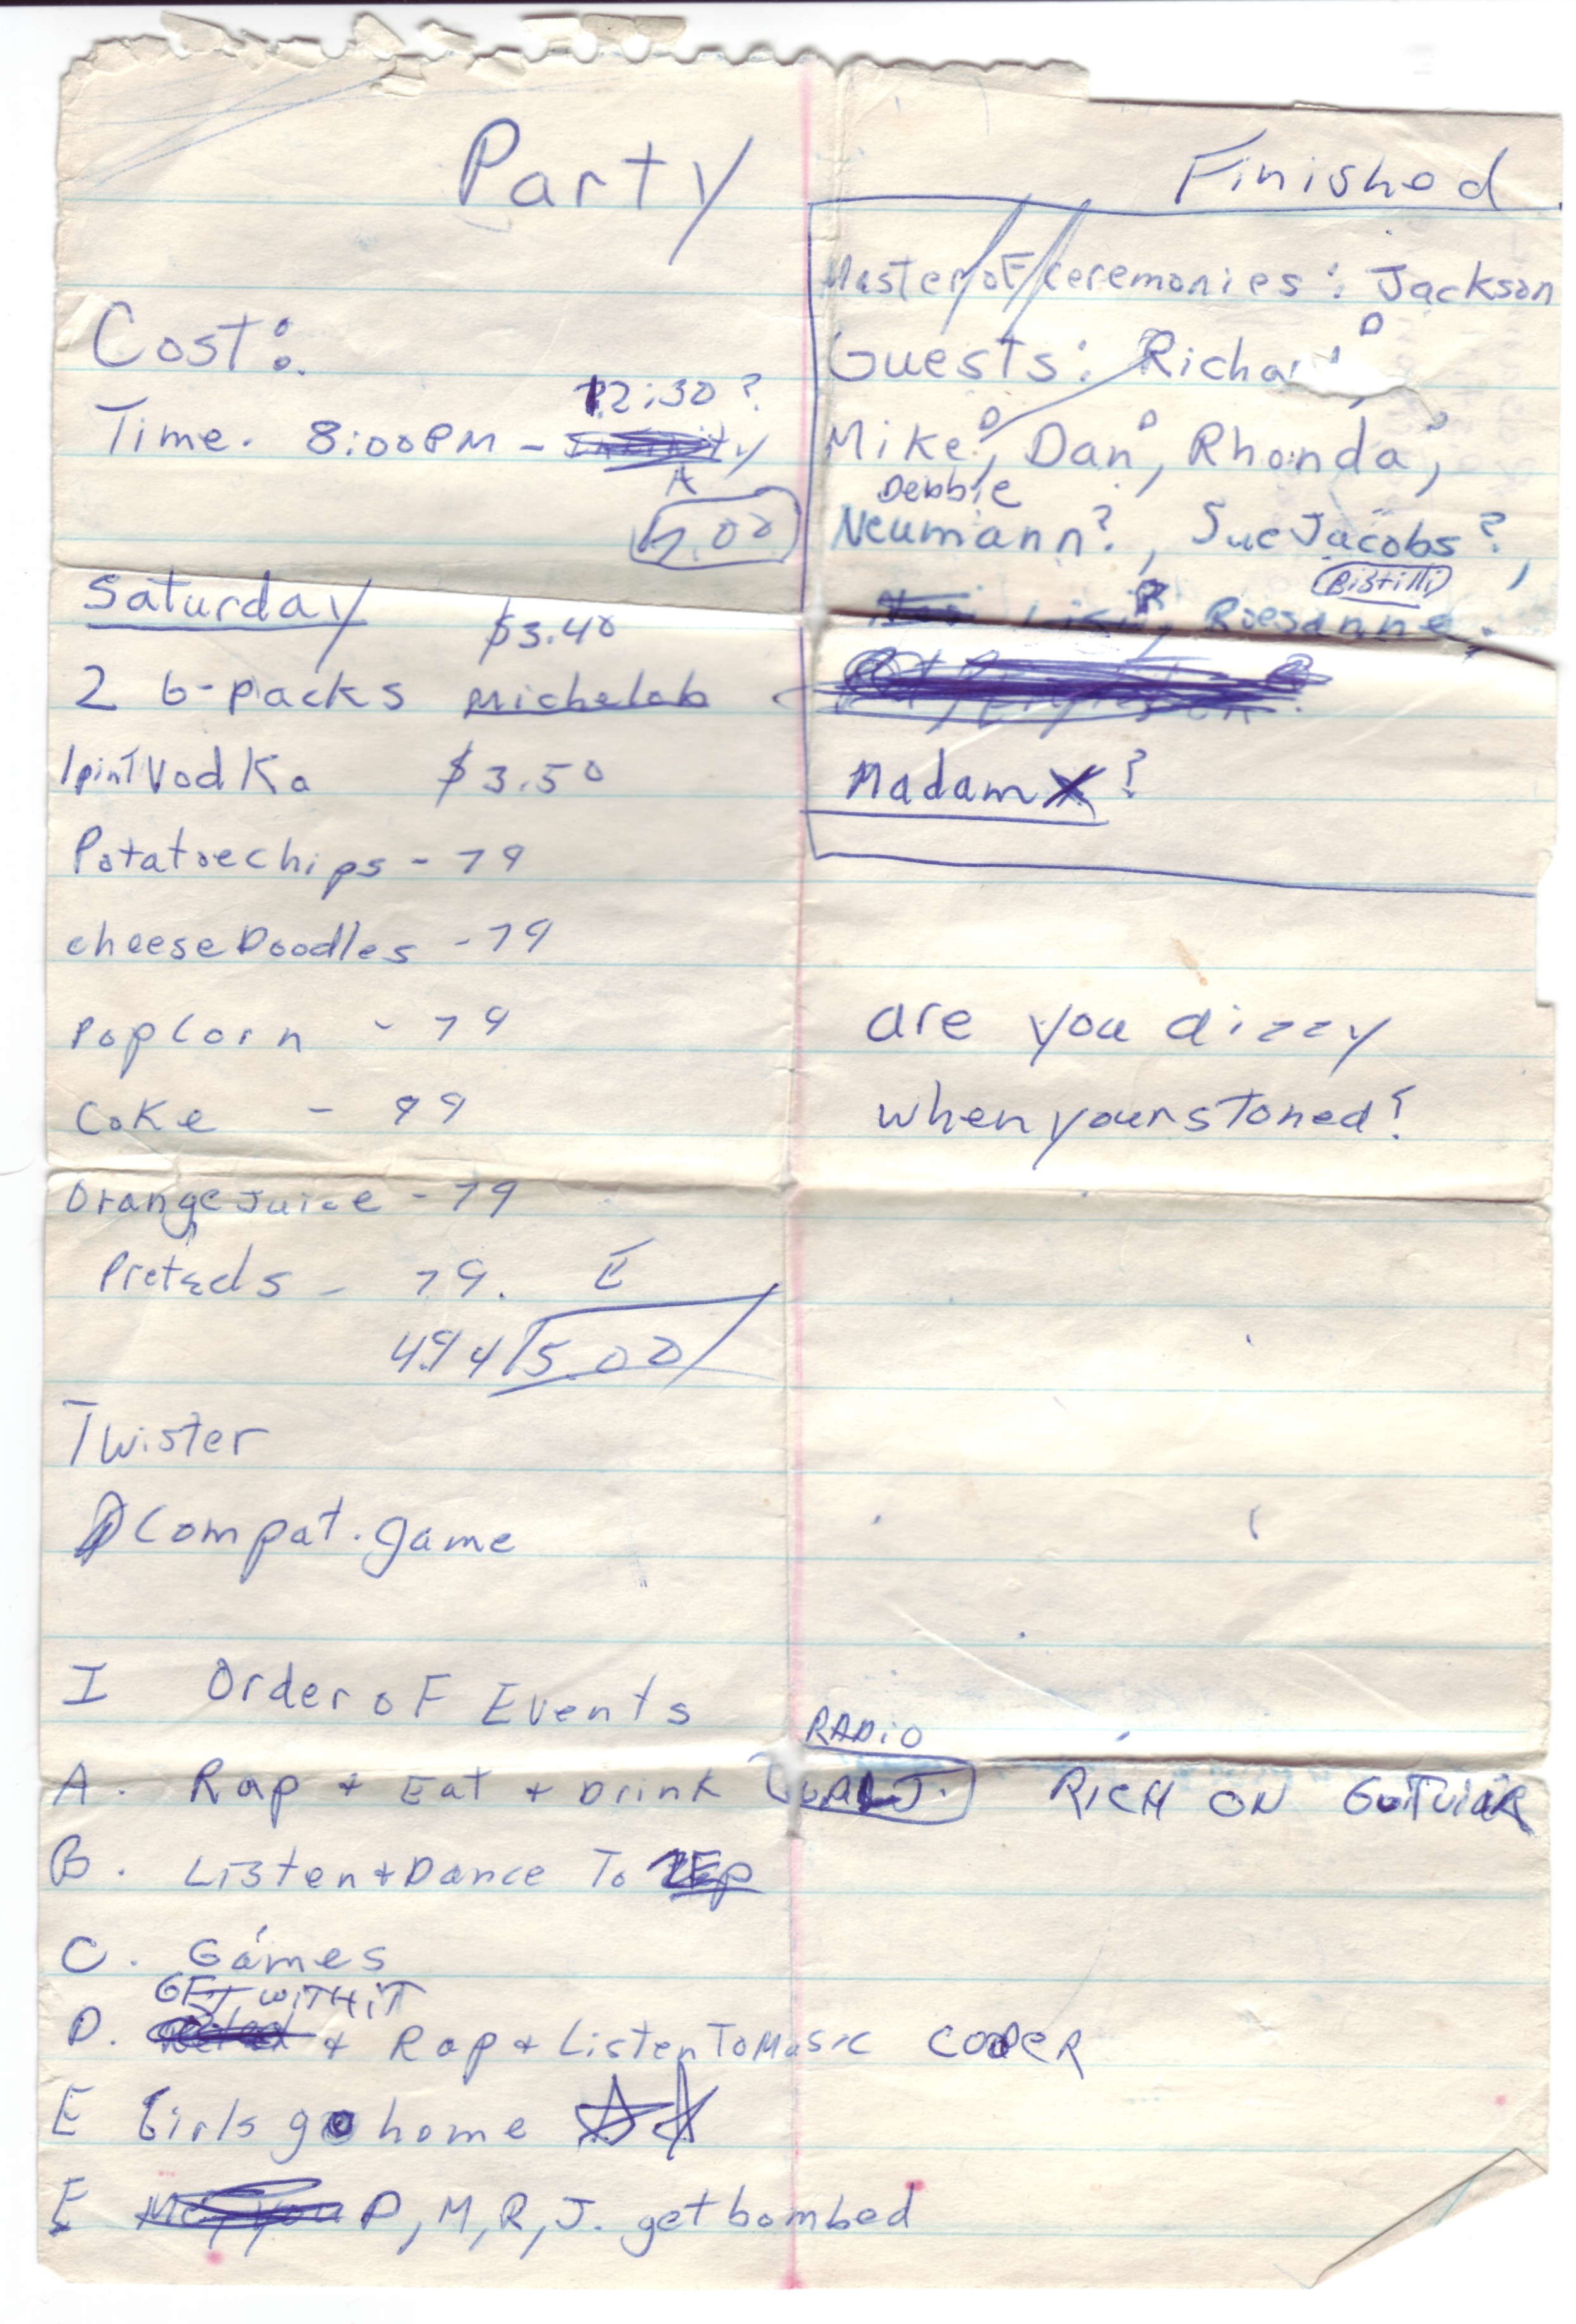 Party
Cost:
12:30?
Time. 8:00PM -
A
5.00
Saturday
$3.40
2 6-packs Michelob
1 pint Vodka $3.50
Potatoe chips - 79
cheese Doodles - 79
Popcorn - 79
Coke - 99
Orange Juice - 79
Pretzels - 79.
E
494 5.00
Twister
Compat. game
Finished
Master of ceremonies: Jackson
Guests: Richar
Mike, Dan, Rhonda,
Debbie
Neumann?, Sue Jacobs?,
Bistilli
Roesanne.
Madam X?
are you dizzy
when your stoned?
I Order of Events
RADiO
A. Rap + Eat + Drink RICH ON GuiTuiaR
B. Listen + Dance To ZEp
C. Games
GET WITH iT
D. + Rap + Listen To Music COOPER
E Girls go home
E D, M, R, J. get bombed